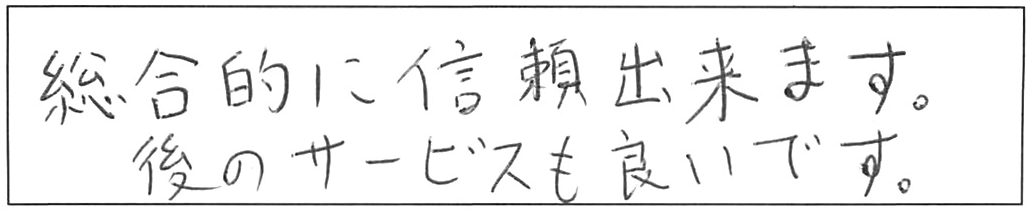 総合的に信頼出来ます。
後のサービスも良いです。